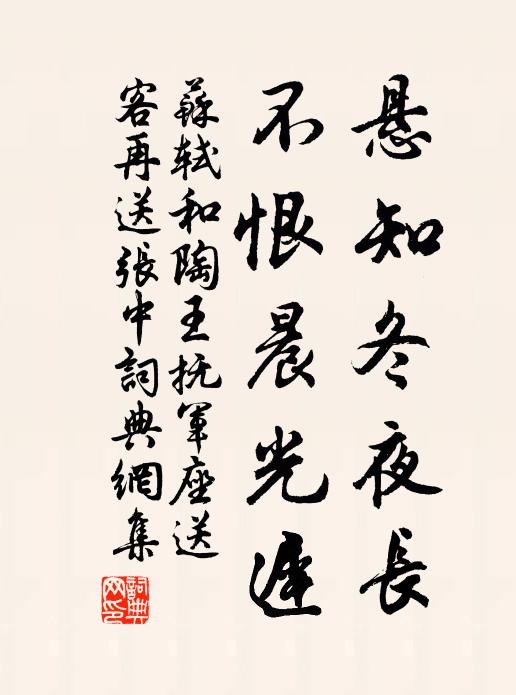 悬知冬夜長
不恨晨光遅
蘇軾和陶王抚軍座送
客再送張中詞典網集
詞典
网印